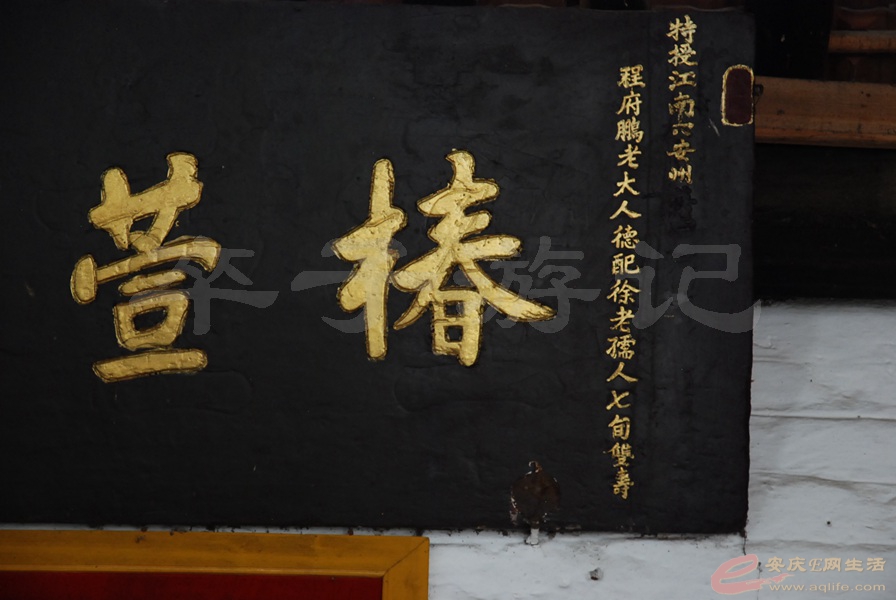 特授江南六安州
程府鵬老大人德配徐老孺人七旬雙壽
椿萱
卒子游记
安庆E网生活
www.aqlife.com